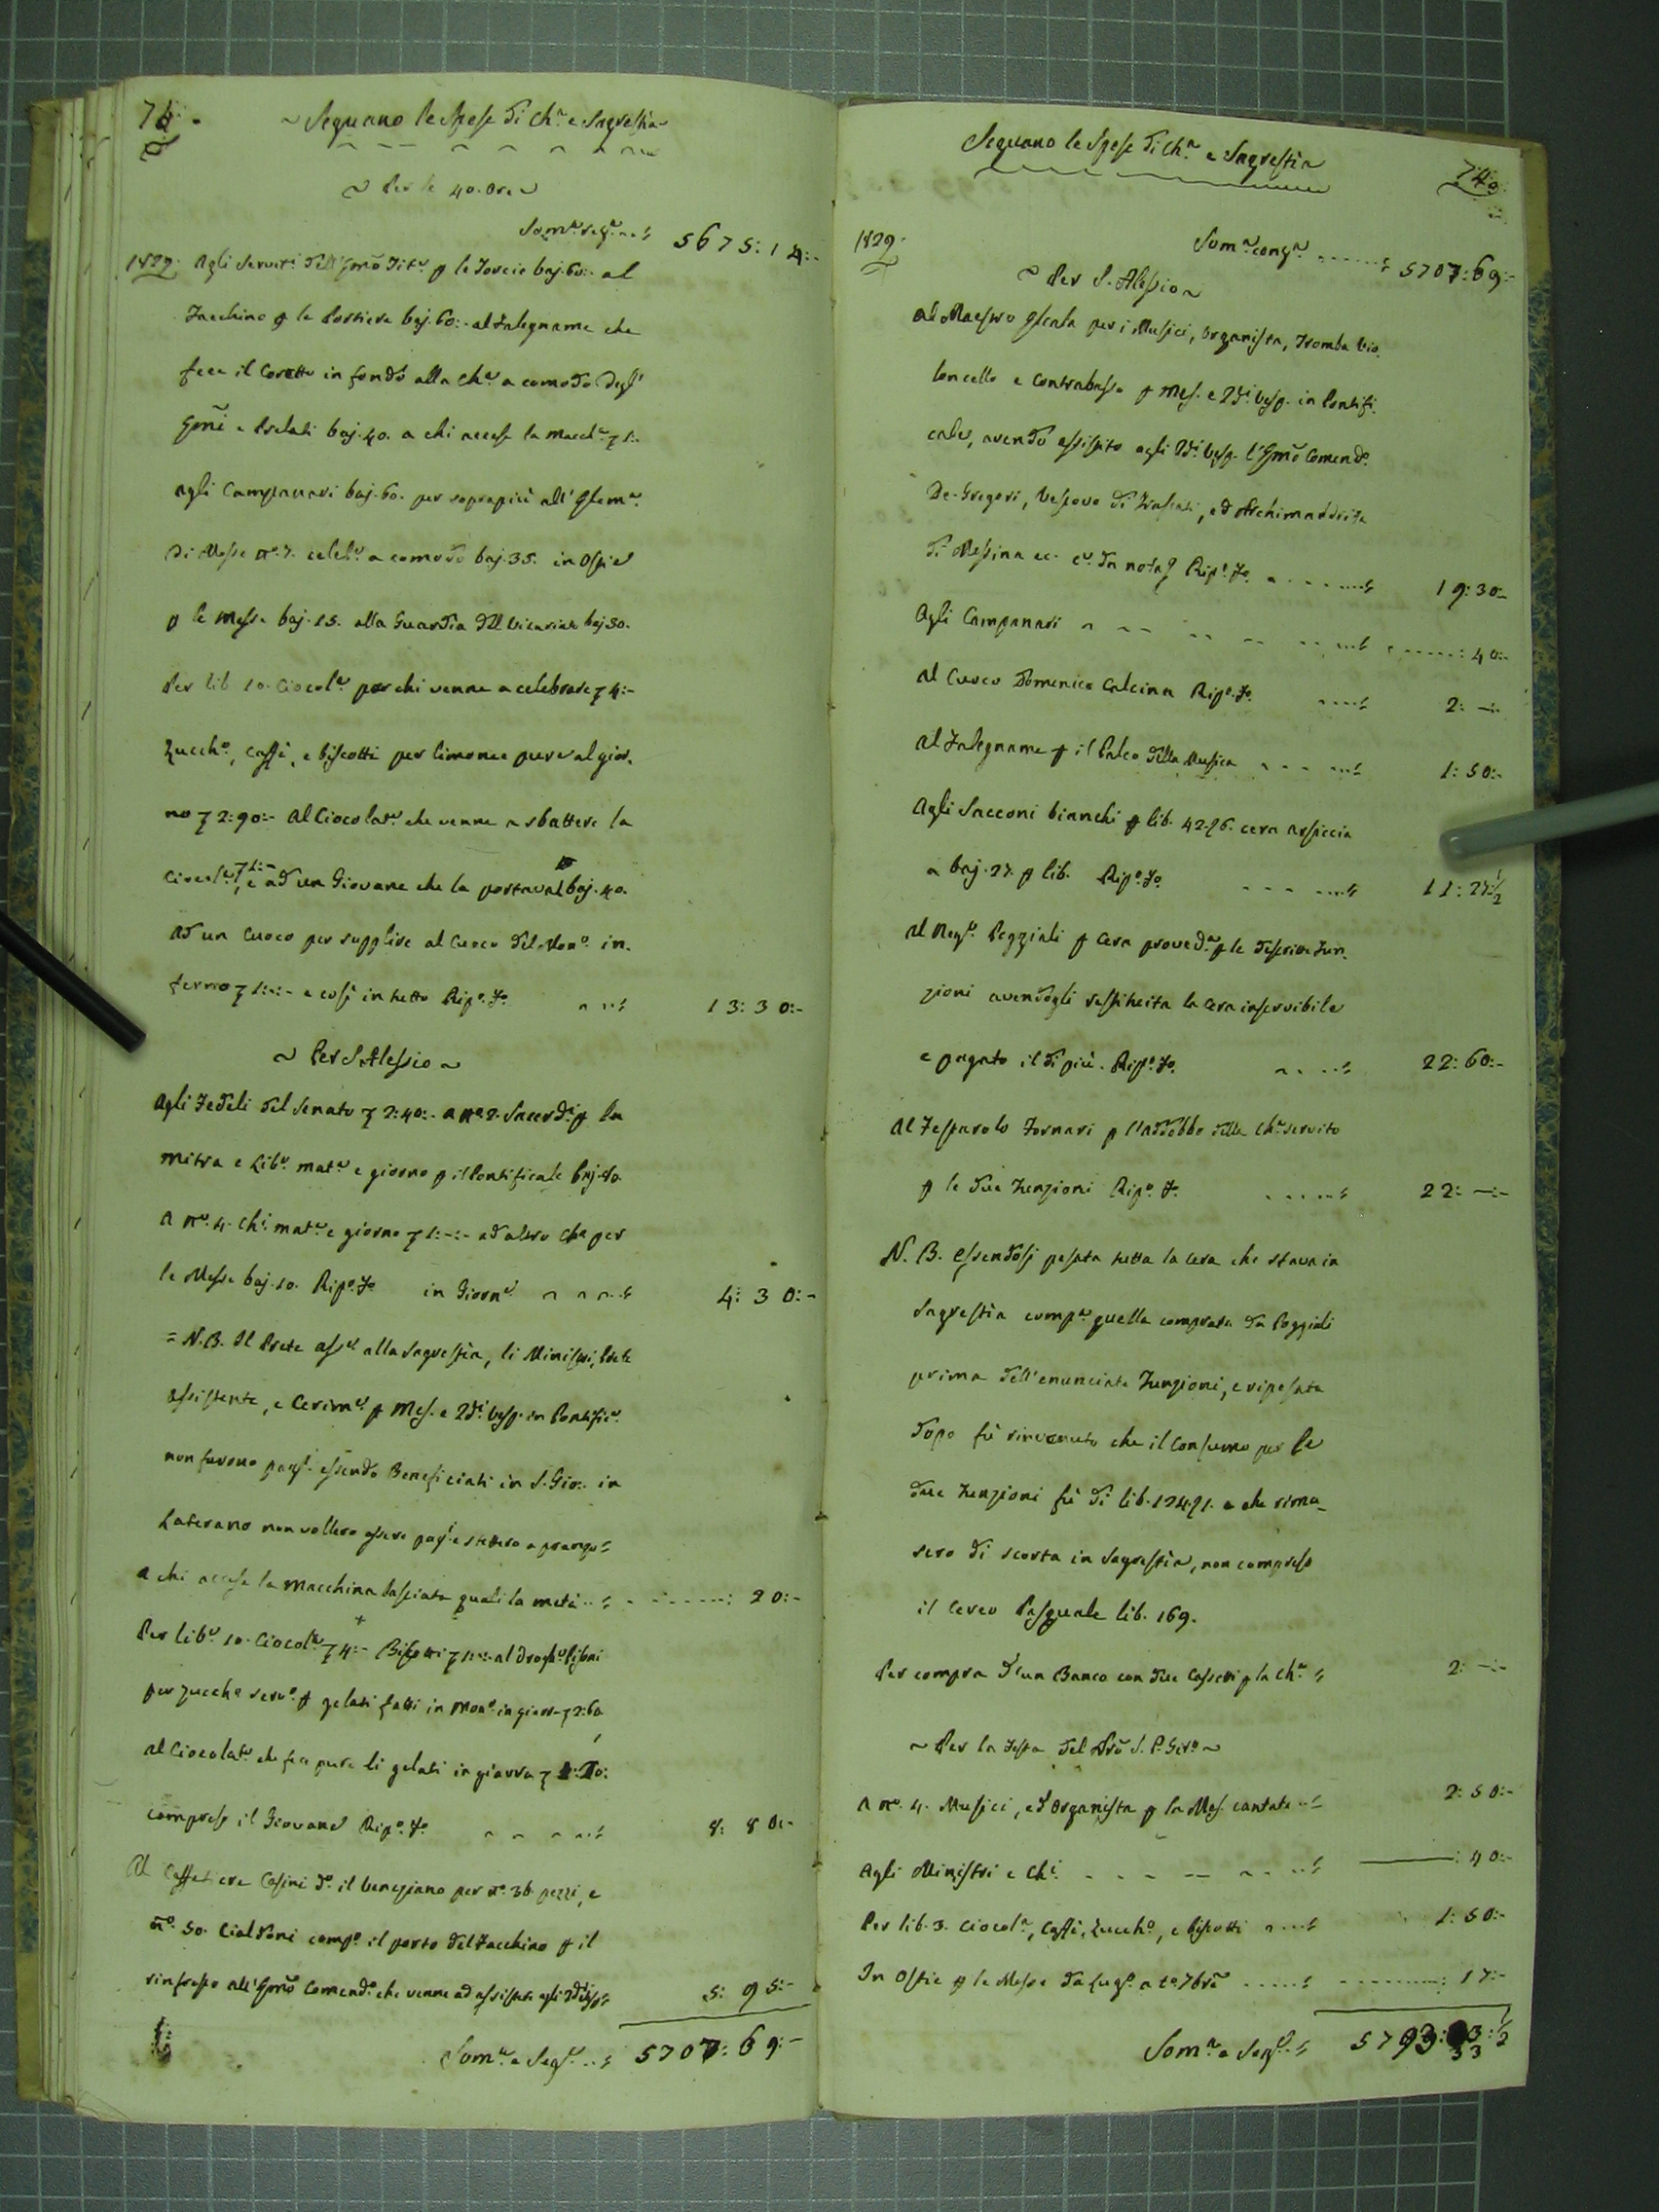 ~ Seguano le Spese di Ch.ª e Sagrestia
~ Per le 40. Ore ~
Som.ª seg.ᵉ 5675:14:-
1829. Agli Servit.ⁱ dell'Emõ Tit.ᵉ p le Torcie baj. 60:- al
Facchino p le Portiere baj. 60:- al Falegname che
fece il Coretto in fondo alla Ch.ª a comodo degl'
Emĩ e Prelati baj. 40. a chi accese la Macch.ª 1:-
agli Campanari baj. 60. per soprapiù all'
Di Messe nº. 7. celeb.ᵉ a comodo baj. 35. in Ostie
p le Messe baj. 15. alla Guardia del Vicariato baj. 30.
Per lib. 10. Ciocol.ª per chi venne a celebrare 4:-
Zucch.º, Caffè, e biscotti per limonee pure al gior.
no 2:90:- Al Ciocolat.ᵉ che venne a sbattere la
Ciocol.ª 1:- , e ad un Giovane che la portava baj. 40.
Ad un Cuoco per supplire al Cuoco del Mon.º in.
fermo 1:-:- e così in tutto Rip.º fº. 13:30:-
~ Per S. Alessio ~
Agli Fedeli del Senato 2:40:- a nº 2. Sacerd.ⁱ p la
mitra e Lib.º mat.ª e giorno p il Pontificale baj. 80.
A nº. 4. Ch.ⁱ mat.ª e giorno 1:-:- ad altro Ch.º per
le Messe baj. 10. Rip.º fº in Giorn.ᵉ 4:30:-
= N.B. Il Prete ass.ᵉ alla Sagrestia, li Ministri, Prete
assistente, e Cerim.ᵉ p Mes. e 2di Vesp. in Pontific.ᵉ
non furono pag.ⁱ essendo Beneficiati in S. Gio: in
Laterano non vollero essere pag.ⁱ e stettero a pranzo
a chi accese la macchina lasciata quasi la metà 20:-
Per lib.ᵉ 10. Ciocol.ª 4:- Biscotti 1:-:- al Drogh.ᵉ
per zucch.º serv.º p gelati fatti in Mon.º in giorn. 2:60
Al Ciocolat.ᵉ che fece pure li gelati in giarra
compreso il Giovane Rip.º fº. 8:80:-
Al Caffettiere Casini d.º il Veneziano per nº. 36. pezzi, e
nº. 50. Cialdoni comp.º il porto del Facchino p il
rinfresco all'Emõ Comend.º che venne ad assistere agli 2di Vesp. 5:95:-
Som.ª e Seg.ᵉ 5707:69:-
Seguano le Spese di Ch.ª e Sagrestia
74.
1829. Som.ª cong.ª 5707:69:-
~ Per S. Alessio ~
Al Maestro per i Musici, Organista, Tromba Vio.
loncello e Contrabasso p Mes. e 2di Vesp. in Pontifi.
cale, avendo assistito agli 2di Vesp. l'Emõ Comend.º
De-Gregori, Vescovo di Frascati, ed Archimandrita
di Messina ec. c.ᵉ da nota Rip.º fº. 19:30:-
Agli Campanari 40:-
Al Cuoco Domenico Calcina Rip.º fº. 2:-:-
Al Falegname p il Palco della Musica 1:50:-
Agli Sacconi bianchi p lib. 42.
 cera arsiccia
a baj. 27. p lib. Rip.º fº. 11:27:½
Al Neg.ᵉ Poggioli p Cera proved.ª p le descritte Fun.
zioni avendogli restituita la Cera inservibile
e pagato il di più. Rip.º fº. 22:60:-
Al Festarolo Fornari p l'addobbo della Ch.ª servito
p le due Funzioni Rip.º fº. 22:-:-
N. B. Essendosi pesata tutta la Cera che stava in
Sagrestia comp.ª quella comprata da Poggioli
prima dell'enunciate Funzioni, e ripesata
dopo fù rinvenuto che il Consumo per le
due Funzioni fù di lib. e che rima-
sero di scorta in Sagrestia, non compreso
il Cereo Pasquale lib. 169.
Per compra d'un Banco con due Cassetti p la Ch.ª 2:-:-
~ Per la Festa del Nrõ S. P. Giro ~
A nº. 4. Musici, ed Organista p la Mes. cantata 2:50:-
Agli Ministri e Ch.ⁱ 40:-
Per lib. 3. Ciocol.ª, Caffè, Zucch.º, e biscotti 1:50:-
In Ostie p le Messe da Lug.º a tº 7brẽ 17:-
Som.ª e Seg.ᵉ 5793:33:½